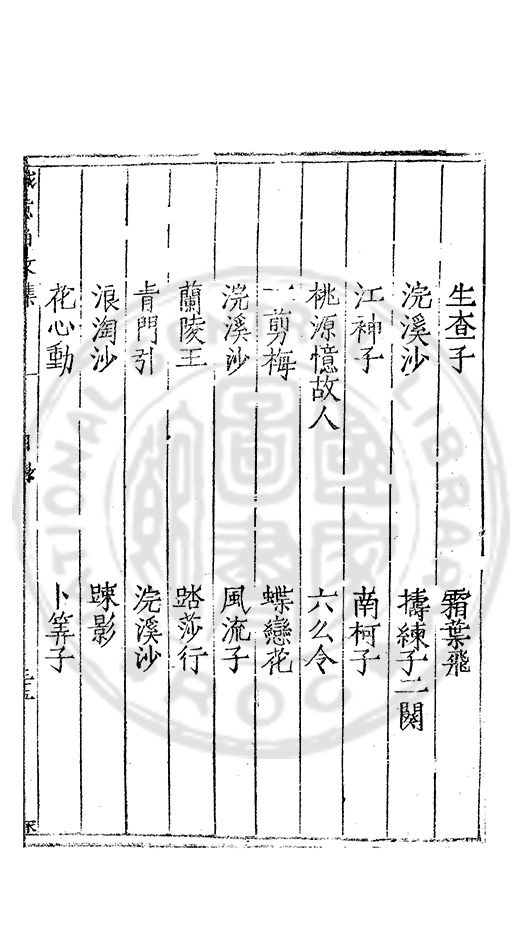 生查子　霜葉飛
浣溪沙　擣練子二闋
江神子　南柯子
桃源憶故人　六么令
一剪梅　蝶戀花
浣溪沙　風流子
蘭陵王　踏莎行
青門引　浣溪沙
浪淘沙　踈影
花心動　卜筭子